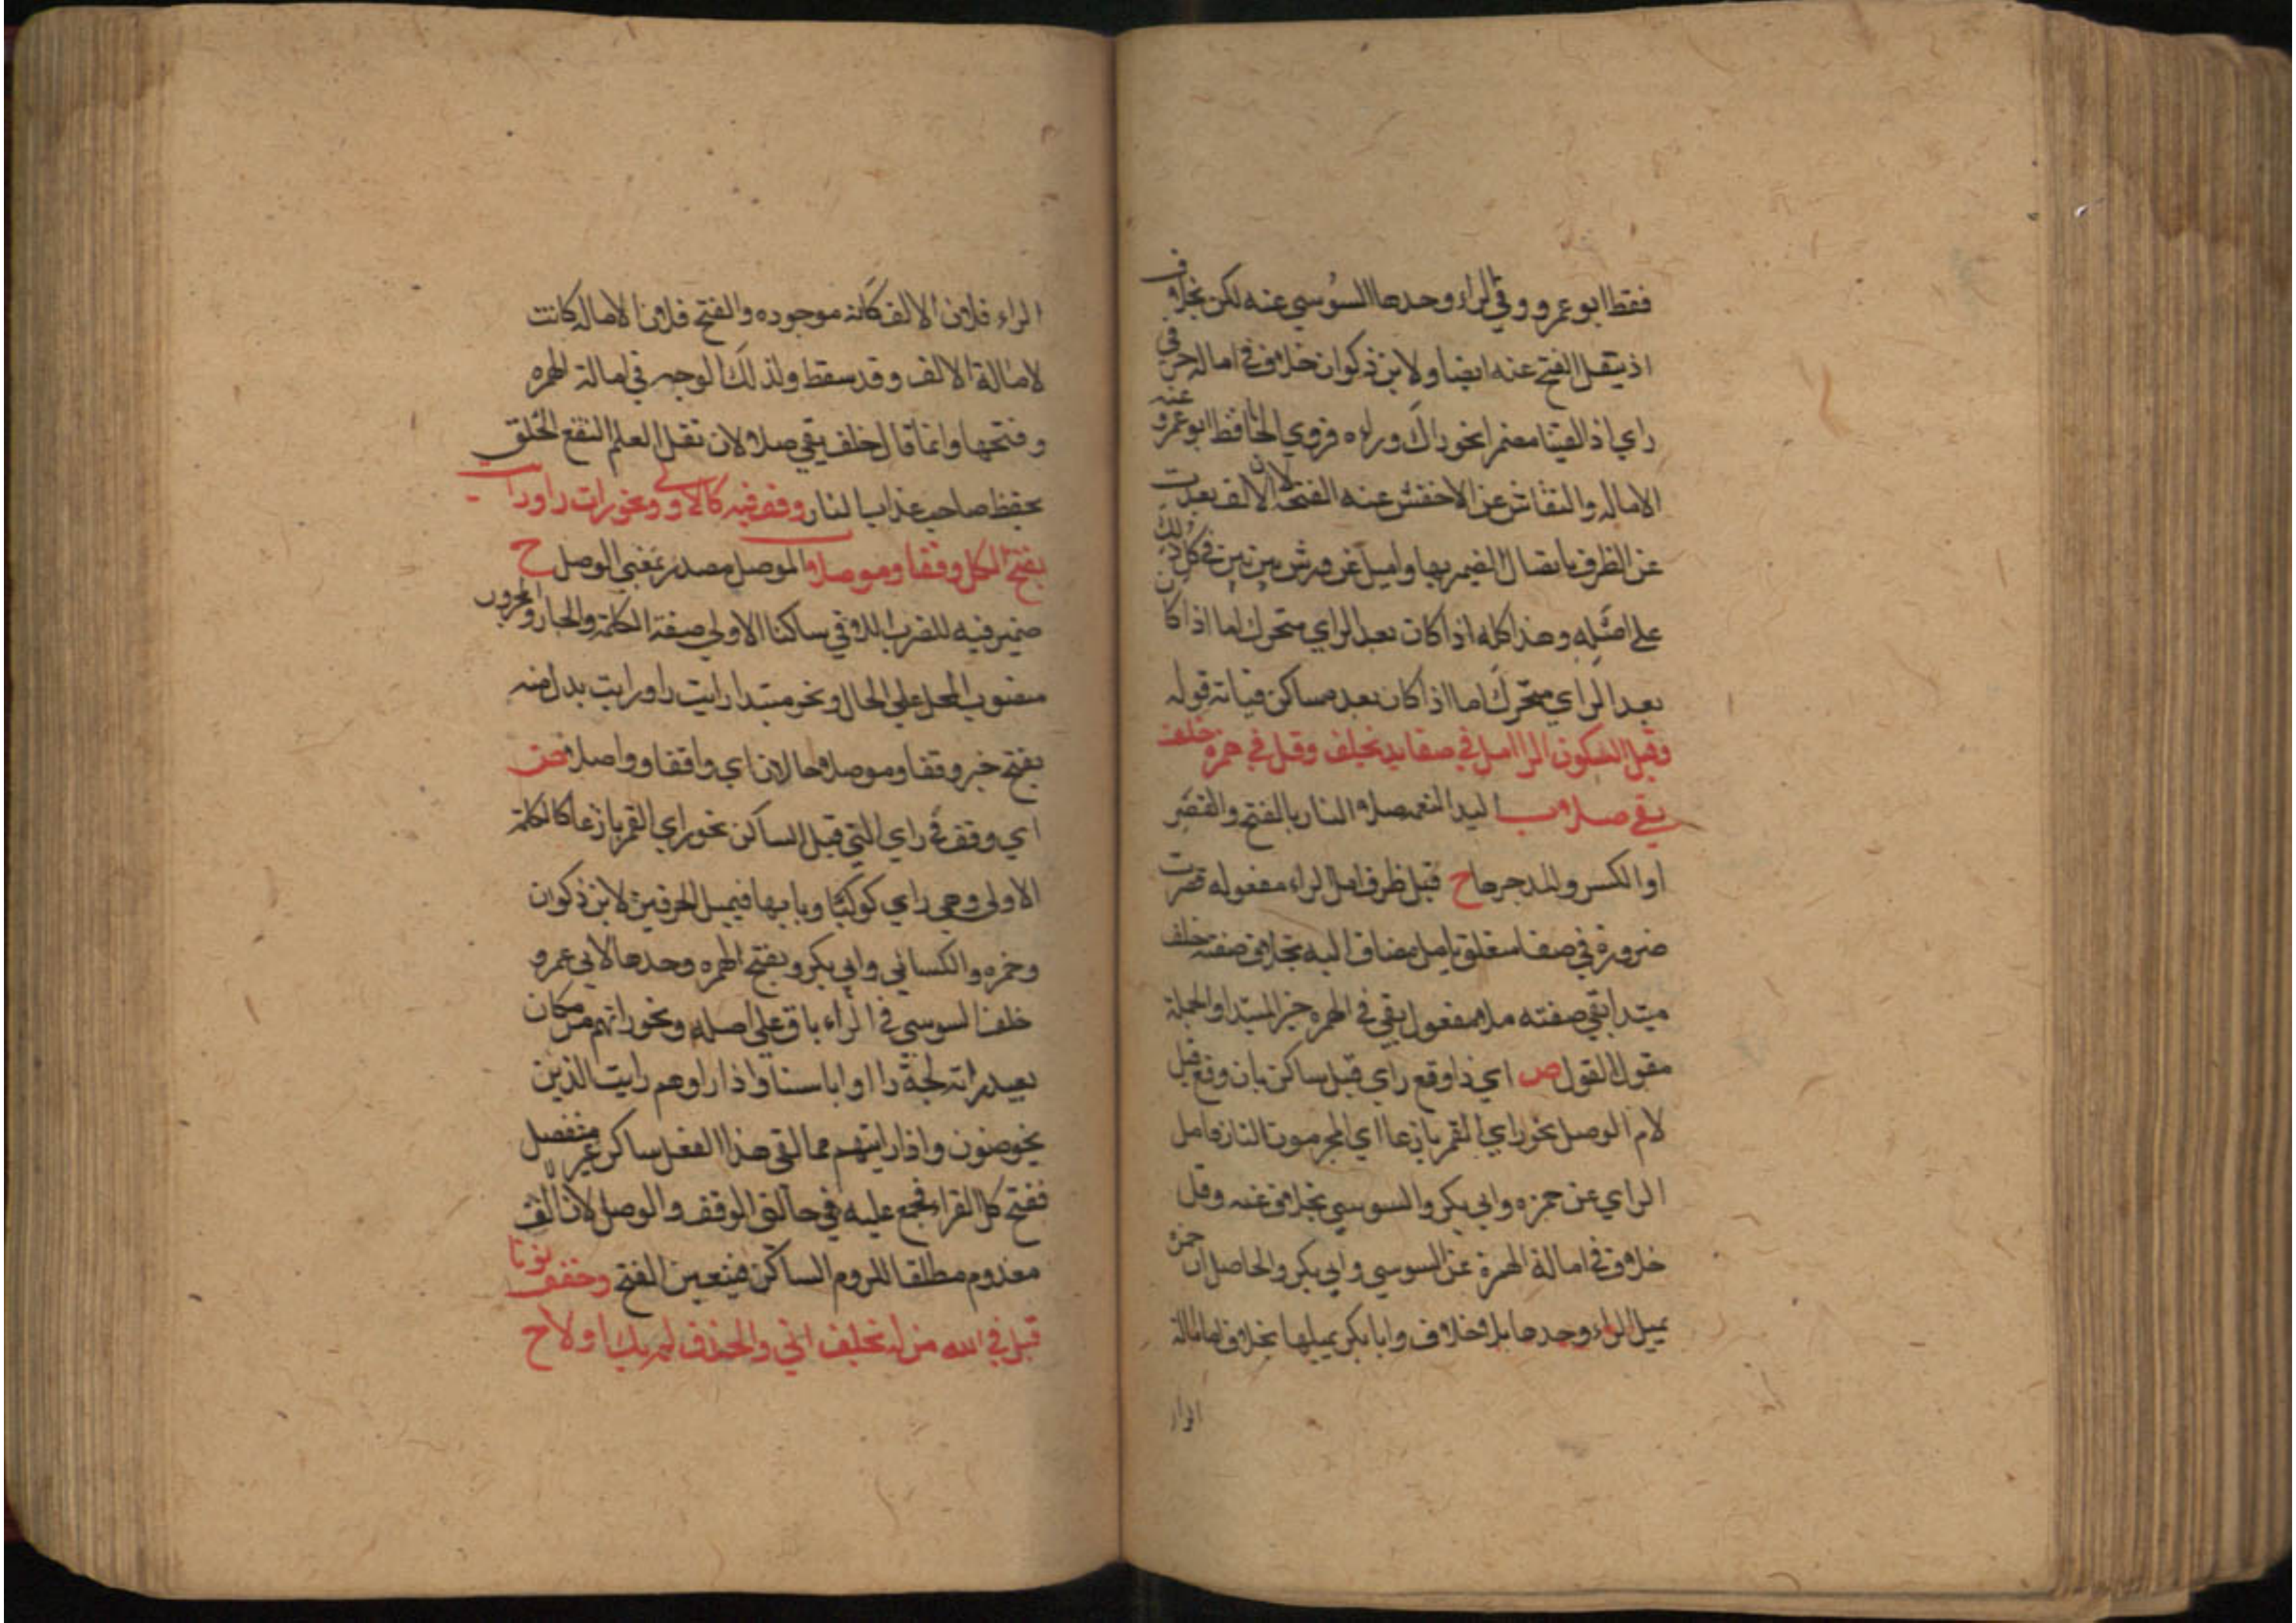 فقط ابو عمرو وفي الراء وحدها السوسي عنه لكن بخلاف
اذ ينقل الفتح عنه ايضا ولابن ذكوان خلاف في امالة حرفي
راي اذ القيا مضمرا نحو راك وراه فروي الحافظ ابو عمرو عنه
الاماله والنقاش عن الاخفش عنه الفتح لان الالف بعدت
عن الطرف باتصال الضمير بها واميل عن ورش بين بين في كل ذلك
على اصله وهذا كله اذا كان بعد الراي متحرك اما اذا كان
بعد الراي متحرك اما اذا كان بعده ساكن فياته قوله
وقبل السكون الرا امل في صفا يد بخلف وقل في همزة خلف
يقي صلا ب اليد النعمه صلاء النار بالفتح والقصر
او الكسر والمد حرها ح قبل ظرف امل الراء مفعوله قصرت
ضرورة في صفا متعلق بامل مضاف اليه بخلاف صفته خلف
مبتدا يقي صفته صلا مفعول يقي في الهمزه خبر المبتدا والجملة
مقول القول ص اي اذا وقع راي قبل ساكن بان وقع قبل
لام الوصل نحو راي القمر بازغا راي المجرمون النار فامل
الراي عن حمزه وابي بكر والسوسي بخلاف عنه وقل
خلاف في امالة الهمزة عن السوسي وابي بكر والحاصل ان حمزة
يميل الراء وحدها بلا خلاف وابا بكر يميلها بخلاف امالة
الراء
الراء فلان الالف كانه موجوده والفتح فلان الاماله كانت
لامالة الالف وقد سقط ولذلك الوجه في امالة الهمزه
وفتحها وانما قال خلف يقي صلا لان نقل العلم النفع الخلق
يحفظ صاحبه عذاب النار وقف فيه كالاولى ونحو رات راو رايت
بفتح الكل وقفا وموصلا الموصل مصدر بمعنى الوصل ح
ضمير فيه للضرب الذي في ساكنا الاولى صفة الكلمة والجار والمجرور
منصوب المحل على الحال ونحو مبتدا رايت راو رايت بدل منه
بفتح خبر وقفا وموصلا حالان اي واقفا وواصلا ص
اي وقف في راي التي قبل الساكن نحو راي القمر بازغا كالكلمة
الاولى وهي راي كوكبا وبابها فيميل الحرفين لابن ذكوان
وحمزه والكسائي وابي بكر ويفتح الهمزه وحدها لابي عمرو
خلف السوسي في الراء باق على اصله ونحو راتهم من مكان
بعيد راته لجة راا وا باسنا واذا راوهم رايت الذين
يخوضون واذا رايتهم مما لقى هذا الفعل ساكن غير منفصل
ففتح كل القراء فجمع عليه في حالتي الوقف والوصل لان الف
معدوم مطلقا للزوم الساكن فيتعين الفتح وخفف نونا
قبل في الله من له بخلف اتى والحذف لم يك اولا ح